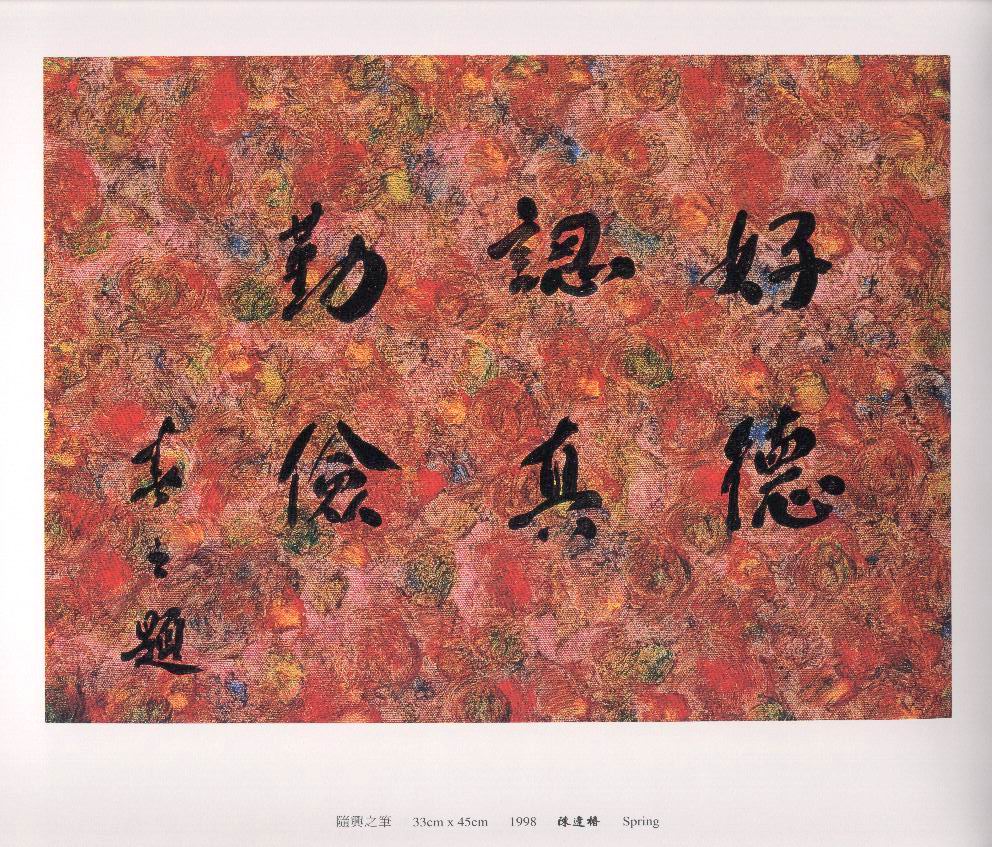 好德
認真
勤儉
春之題
隨興之筆 33cm x 45cm 1998 陳達椿 Spring